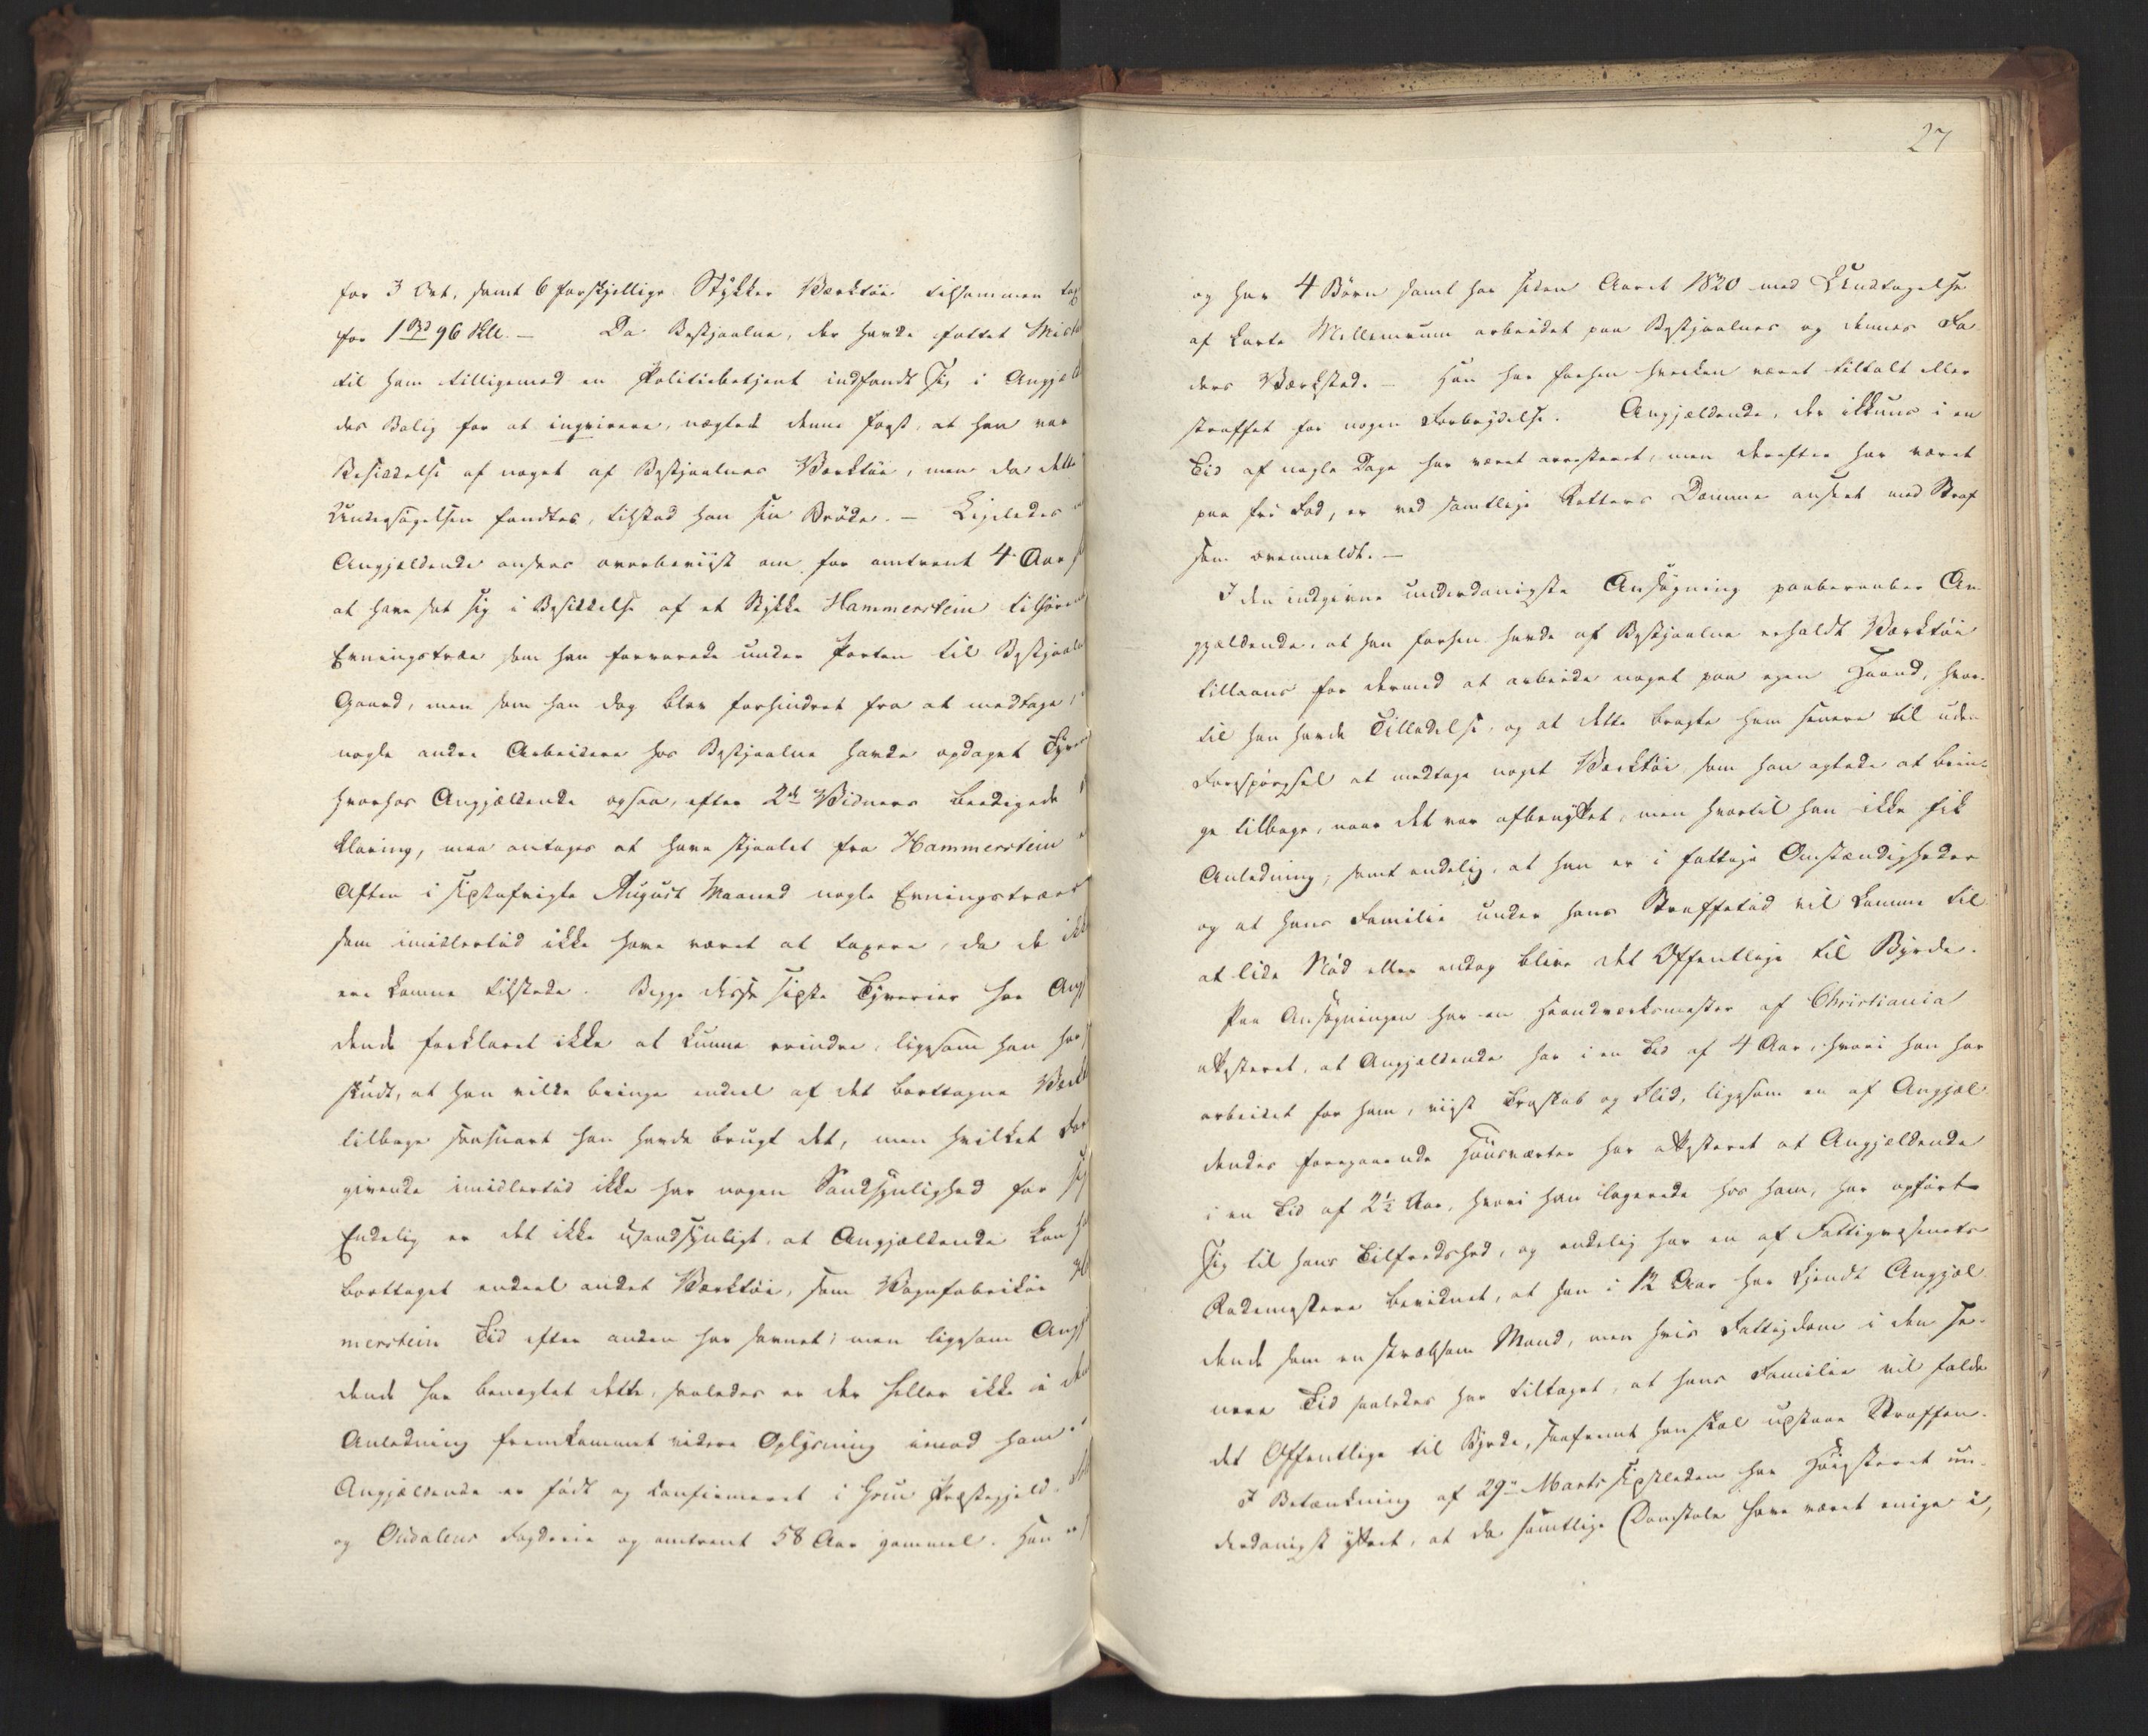 for 3 Ort, samt 6 forskjellige Stykker Værktøi tilsammen tax
for 1 Spd 96 Skll. – Da Bestjaalne, der havde fattet Mistan
til ham tilligemed en Politiebetjent indfandt sig i Angjæl
des Bolig for at inqvirere, nægtede denne først, at han var
Besiddelse af noget af Bestjaalnes Værktøi, men da dette
Undersøgelsen fandtes, tilstod han sin Brøde. – Ligeledes
Angjeldende ansees overbeviist om for omtrent 4 Aar s
at have sat sig i Besiddelse af et Stykke Hammerstein tilhøren
Evningstræe som han forvarede under Porten til Bestjaal
Gaard, men som han dog blev forhindret fra at medtage,
nogle andre Arbeidere hos Bestjaalne havde opdaget Tyve
hvorhos Angjældende ogsaa, efter 2de Vidners beedigede
klaring, maa antages at have stjaalet fra Hammerstein e
Aften i sidstafvigte August Maaned nogle Evningstræer
som imidlertid ikke have været at taxere, da de ikk
ere komne tilstede. Begge disse sidste Tyverier har Angj
dende forklaret ikke at kunne erindre, ligesom han har
skudt, at han vilde bringe endeel af det borttagne Værk
tilbage saasnart han havde brugt det, men hvilket For
givende imidlertid ikke har nogen Sandsynlighed for sig
Endelig er det ikke usandsynligt, at Angjældende kan ha
borttaget endeel andet Værktøi, som Vognfabrikør Ha
merstein Tid efter anden har savnet; men ligesom Angj
dende har benægtet dette, saaledes er der heller ikke i den
Anledning fremkommet videre Oplysning imod ham.
Angjældende er født og confirmeret i Grue Præstegjeld
og Oudalens Fogderie og omtrent 58 Aar gammel. Han er
27
og har 4 Børn samt har siden Aaret 1820 med Undtagelse
af korte Mellemrum arbeidet paa Bestjaalnes og dennes Fa-
ders Værksted. – Han har forhen hverken været tiltalt eller
straffet for nogen Forbrydelse. Angjældende, der ikkuns i en
Tid af nogle Dage har været arresteret, men derefter har været
paa fri Fod, er ved samtlige Retters Domme anseet med Straf
som ovenmeldt. –
I den indgivne underdanigste Ansøgning paaberaaber An-
gjældende, at han forhen havde af Bestjaalne erholdt Værktøi
tillaans for dermed at arbeide noget paa egen Haand, hvor-
til han havde Tilladelse, og at dette bragte ham senere til uden
Forespørgsel at medtage noget Værktøi som han agtede at brin-
ge tilbage, naar det var afbenyttet, men hvortil han ikke fik
Anledning, samt endelig, at han er i fattige Omstændigheder
og at hans Familie under hans Straffetid vil komme til
at lide Nød eller endog blive det Offentlige til Byrde.
Paa Ansøgningen har en Haandværksmester af Christiania
attesteret, at Angjældende har i en Tid af 4 Aar, hvori han har
arbeidet for ham, viist Troskab og Flid, ligesom en af Angjæl
dendes foregaaende Huusværter har attesteret at Angjældende
i en Tid af 2½ Aar, hvori han logerede hos ham, har opført
sig til hans Tilfredshed, og endelig har en af Fattigvæsenets
Rodemestere bevidnet, at han i 12 Aar har kjendt Angjæl
dende som en stræbsom Mand, men hvis Fattigdom i den se-
nere Tid saaledes har tiltaget, at hans Familie vil falde
det Offentlige til Byrde, saafremt han skal udstaae Straffen.
I Betænkning af 29de Marts sidstleden har Høiesteret un-
derdanigst yttret, at da samtlige Domstole have været enige i,